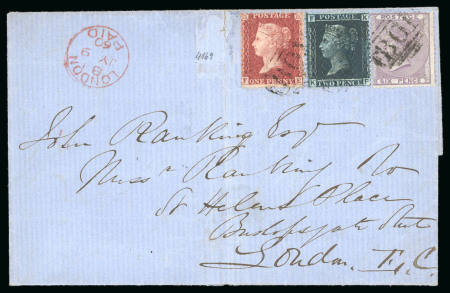 LONDON
8
JY 9
60
PAID
4169
POSTAGE
ONE PENNY
POSTAGE
TWO PENCE
POSTAGE
SIX PENCE
John Ranking Esqr
Missrs Ranking & Co
St Helens Place
Bishopsgate Street
London. E.C.